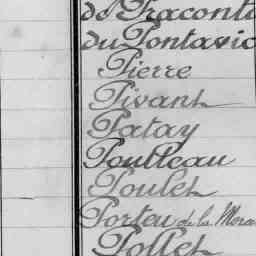 de Fraconta
du Pontavic
Pierre
Pivant
Patay
Poulleau
Poulet
Porteu de la Mora
Pollet